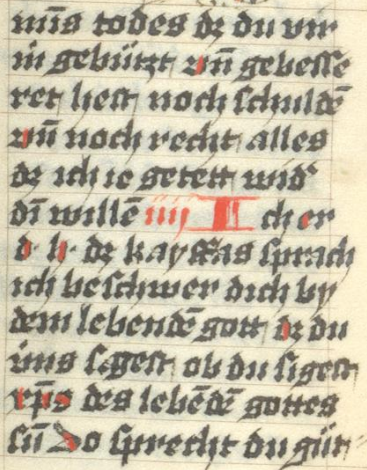 mı̄s todes dz du mir
in gebützt vn̄ gebesse
ret hest noch schuldē
vn̄ noch recht alles
dz ich ie getett wid'
dī willē iiij Ich er
d · h · dz kayffas sprach
ich beschwer dich by
dem lebendē gott dz du
vns sagest ob du sigest
xp̄s des lebēdē gottes
sū So sprecht du gůt